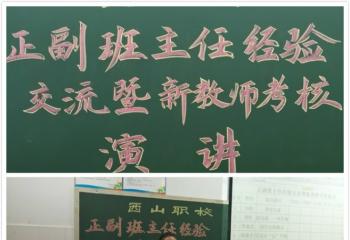 正副班主任经验
交流暨新教师考核
演讲
西山职校
正副班主任经验